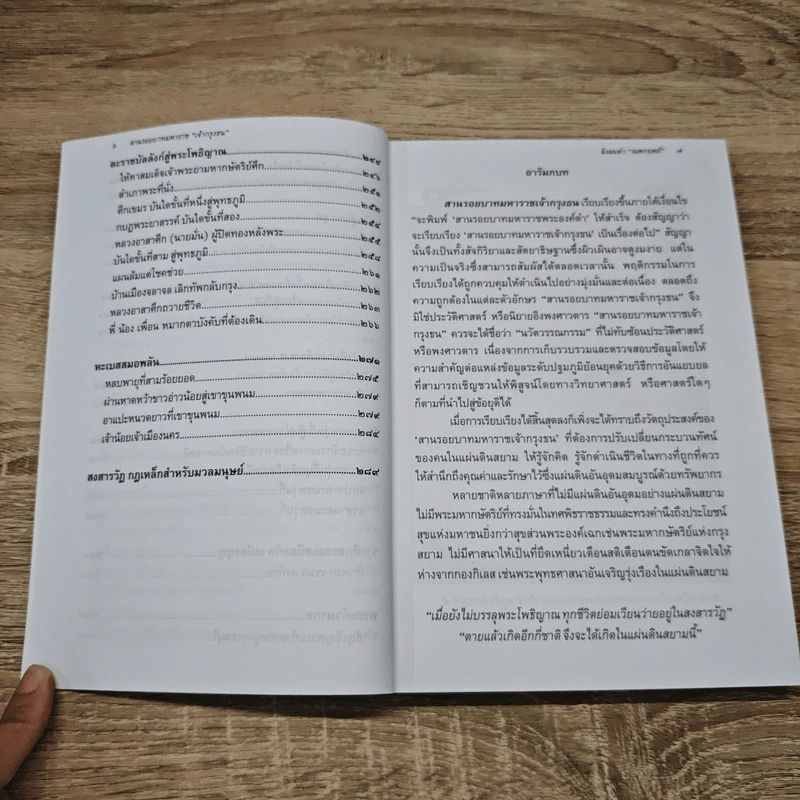 ๖ สานรอยบาทมหาราช “เจ้ากรุงธน”
ละราชบัลลังก์สู่พระโพธิญาณ................๒๔๔
ให้หาสมเด็จเจ้าพระยามหากษัตริย์ศึก................๒๔๖
สำเภาพระที่นั่ง................๒๕๑
ศึกเขมร บันไดขั้นที่หนึ่งสู่พุทธภูมิ................๒๕๒
กบฏพระยาสรรค์ บันไดขั้นที่สอง................๒๕๔
หลวงอาสาศึก (นายมั่น) ผู้ปิดทองหลังพระ................๒๕๕
บันไดขั้นที่สาม สู่พุทธภูมิ................๒๕๘
แผนล้มแต่โชคช่วย................๒๖๑
บ้านเมืองจลาจล เลิกทัพกลับกรุง................๒๖๒
หลวงอาสาศึกถวายชีวิต................๒๖๓
พี่ น้อง เพื่อน หมากตาบังคับที่ต้องเดิน................๒๖๖
ทะเบสสมอพลัน................๒๗๑
หลบพายุที่สามร้อยยอด................๒๗๕
ผ่านหาดหว้าขาวอ่าวน้อยสู่เขาขุนพนม................๒๗๙
อาแปะหนวดยาวที่เขาขุนพนม................๒๗๙
เจ้าน้อยเจ้าเมืองนคร................๒๘๔
สงสารวัฏ กฎเหล็กสำหรับมวลมนุษย์................๒๘๙
สิงคมดำ “ณพกฤตย์” ๗
อารัมภบท
สานรอยบาทมหาราชเจ้ากรุงธน เรียบเรียงขึ้นภายใต้เงื่อนไข
“จะพิมพ์ ‘สานรอยบาทมหาราชพระองค์ดำ’ ให้สำเร็จ ต้องสัญญาว่า
จะเรียบเรียง ‘สานรอยบาทมหาราชเจ้ากรุงธน’ เป็นเรื่องต่อไป” สัญญา
นั้นจึงเป็นทั้งสัจกิริยาและสัตยาธิษฐานซึ่งผิวเผินอาจดูงมงาย แต่ใน
ความเป็นจริงซึ่งสามารถสัมผัสได้ตลอดเวลานั้น พฤติกรรมในการ
เรียบเรียงได้ถูกควบคุมให้ดำเนินไปอย่างมุ่งมั่นและต่อเนื่อง ตลอดถึง
ความถูกต้องในแต่ละตัวอักษร “สานรอยบาทมหาราชเจ้ากรุงธน” จึง
มิใช่ประวัติศาสตร์ หรือนิยายอิงพงศาวดาร “สานรอยบาทมหาราชเจ้า
กรุงธน” ควรจะได้ชื่อว่า “นวัตวรรณกรรม” ที่ไม่ทับซ้อนประวัติศาสตร์
หรือพงศาวดาร เนื่องจากการเก็บรวบรวมและตรวจสอบข้อมูลโดยให้
ความสำคัญต่อแหล่งข้อมูลระดับปฐมภูมิย้อนยุคด้วยวิธีการอันแยบยล
ที่สามารถเชิญชวนให้พิสูจน์โดยทางวิทยาศาสตร์ หรือศาสตร์ใดๆ
ก็ตามที่นำไปสู่ข้อยุติได้
เมื่อการเรียบเรียงได้สิ้นสุดลงก็เพิ่งจะได้ทราบถึงวัตถุประสงค์ของ
‘สานรอยบาทมหาราชเจ้ากรุงธน’ ที่ต้องการปรับเปลี่ยนกระบวนทัศน์
ของคนในแผ่นดิน ให้รู้จักคิด รู้จักดำเนินชีวิตในทางที่ถูกที่ควร
ให้สำนึกถึงคุณค่าและรักษาไว้ซึ่งแผ่นดินอันอุดมสมบูรณ์ด้วยทรัพยากร
หลายชาติหลายภาษาที่ไม่มีแผ่นดินอันอุดมอย่างแผ่นดินสยาม
ไม่มีพระมหากษัตริย์ที่ทรงมั่นในทศพิธราชธรรมและทรงคำนึงถึงประโยชน์
สุขแห่งมหาชนยิ่งกว่าสุขส่วนพระองค์เฉกเช่นพระมหากษัตริย์แห่งกรุง
สยาม ไม่มีศาสนาให้เป็นที่ยึดเหนี่ยวเตือนสติเตือนตนขัดเกลาจิตใจให้
ห่างจากกองกิเลส เช่นพระพุทธศาสนาอันเจริญรุ่งเรืองในแผ่นดินสยาม
“เมื่อยังไม่บรรลุพระโพธิญาณ ทุกชีวิตย่อมเวียนว่ายอยู่ในสงสารวัฏ”
“ตายแล้วเกิดอีกกี่ชาติ จึงจะได้เกิดในแผ่นดินสยามนี้”